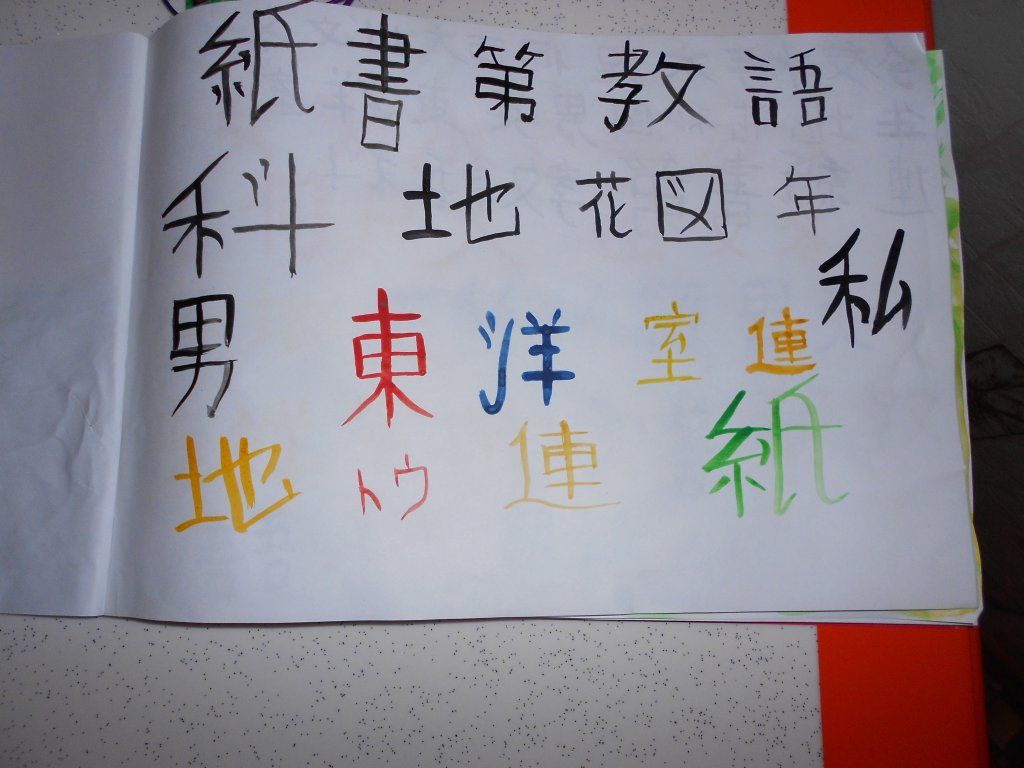 紙書第教語
科地花図年
私
男東洋室連
地トウ連紙